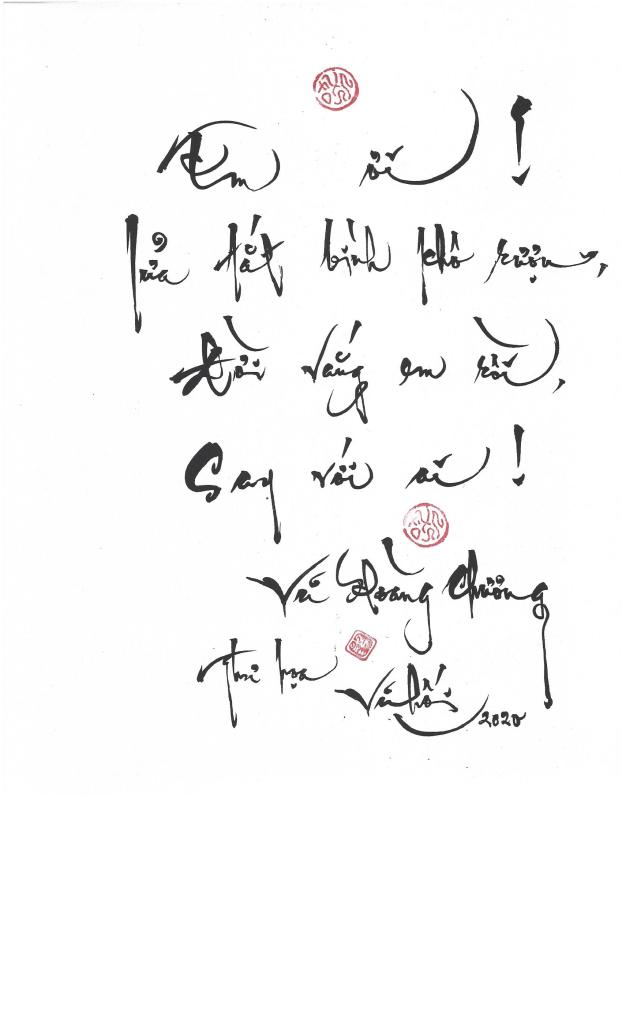 Em ơi !
lửa tắt bình khô rượu,
Đời vắng em rồi,
Say với ai !
Vũ Hoàng Chương
Thi họa Vũ Hối 2020